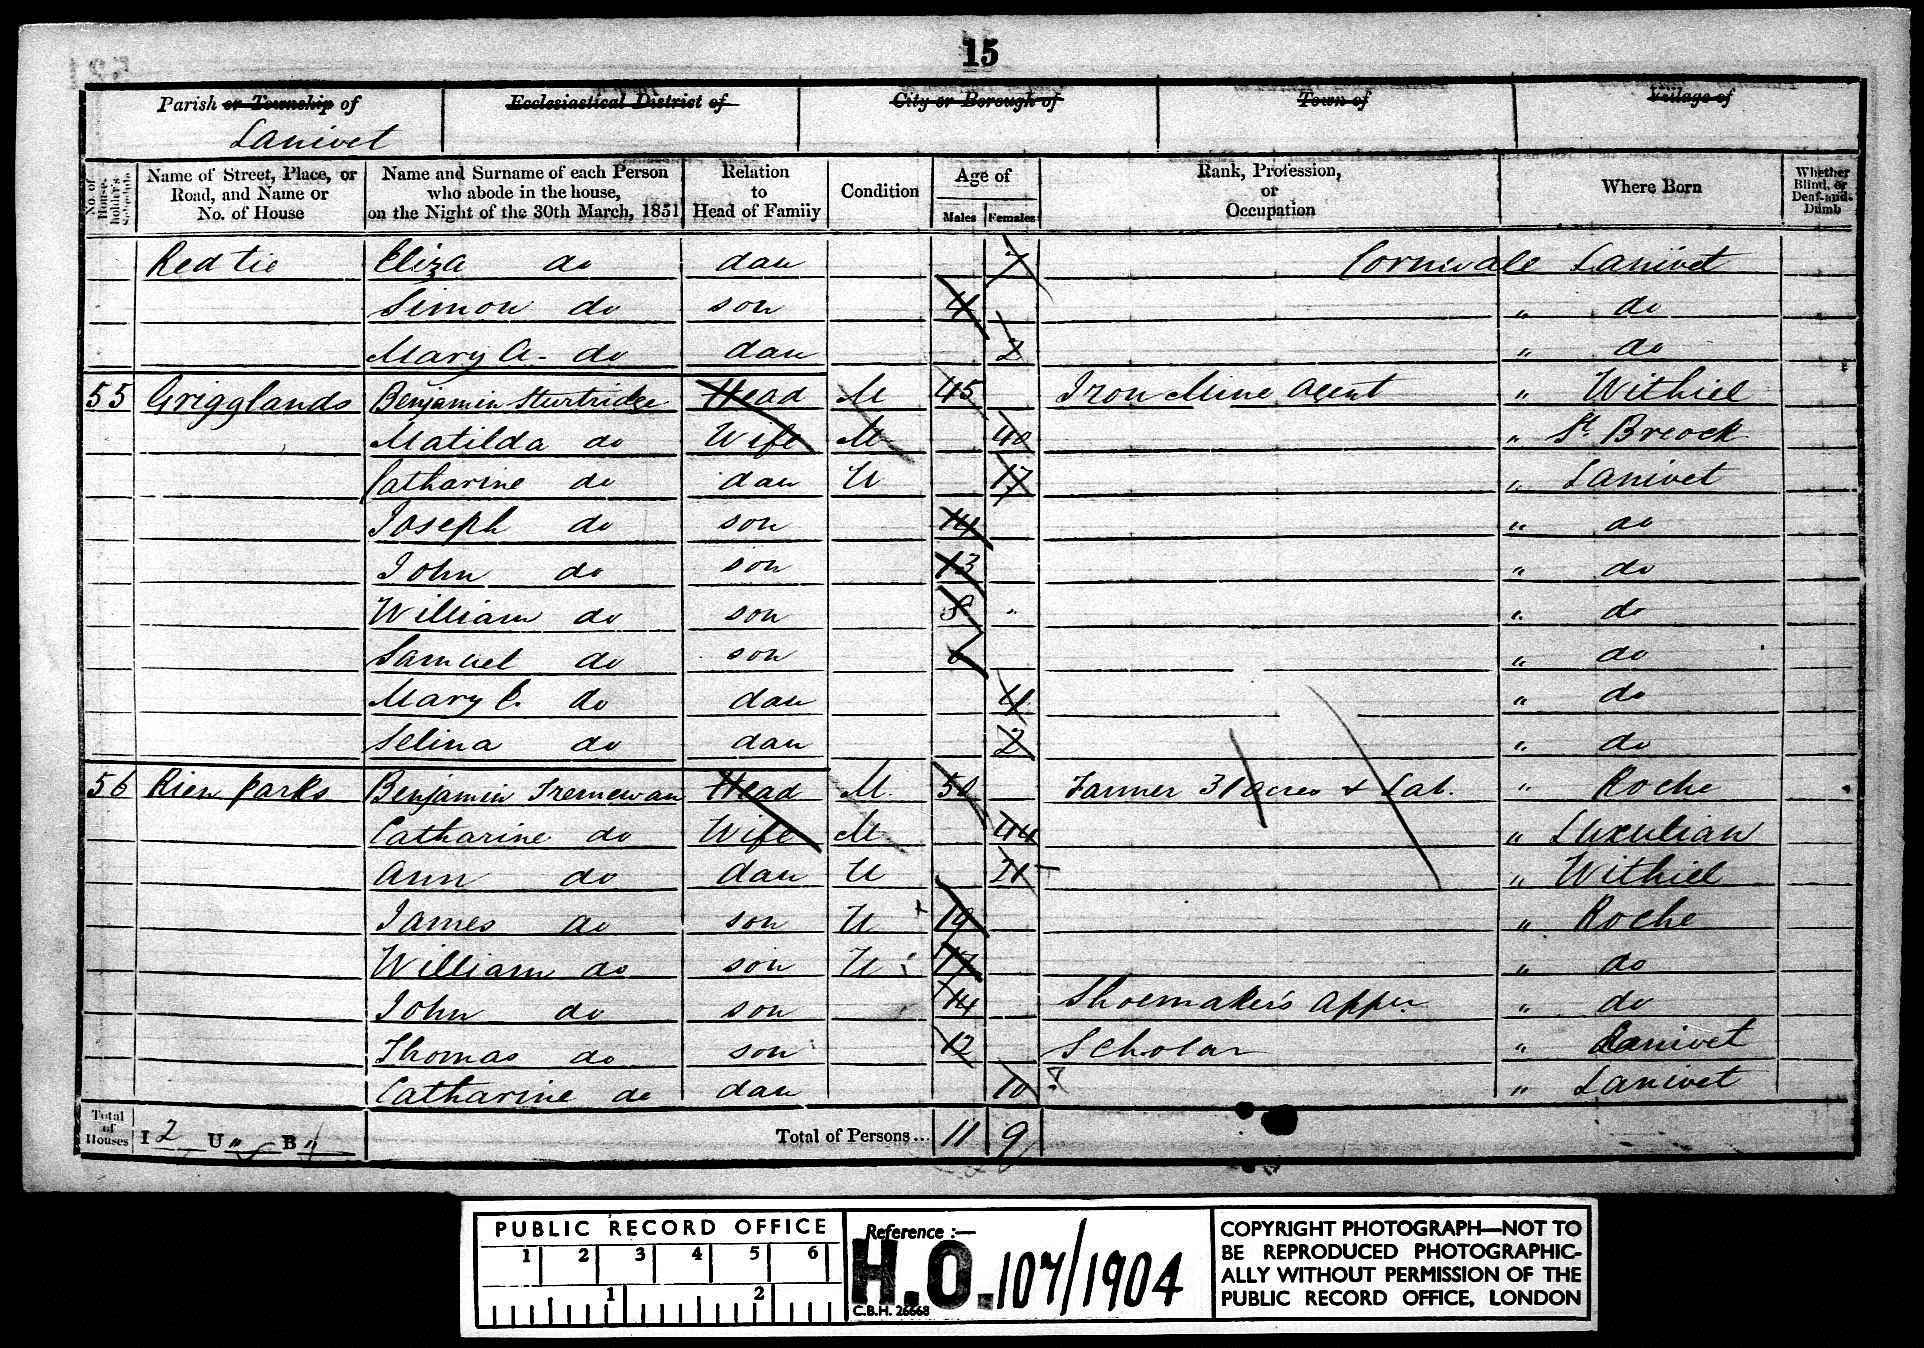 15
Parish or Township of Ecclesiastical District of City or Borough of Town of Village of
Lanivet
No. of House-holder's Schedule Name of Street, Place, or Road, and Name or No. of House Name and Surname of each Person who abode in the house, on the Night of the 30th March, 1851 Relation to Head of Family Condition Age of Males Females Rank, Profession, or Occupation Where Born Whether Blind, or Deaf-and-Dumb
Redtie Eliza do dau 7 Cornwall Lanivet
Simon do son 4 " do
Mary A. do dau 2 " do
55 Grigglands Benjamin Sturtridge Head M 45 Iron Mine Agent " Withiel
Matilda do Wife M 40 " St Breock
Catharine do dau U 17 " Lanivet
Joseph do son 14 " do
John do son 13 " do
William do son 8 " " do
Samuel do son 6 " do
Mary C. do dau 4 " do
Selina do dau 2 " do
56 Rien parks Benjamin Tremewan Head M 50 Farmer 31 acres & Lab. " Roche
Catharine do Wife M 44 " Luxulian
Ann do dau U 21 " Withiel
James do son U 19 " Roche
William do son U 17 " do
John do son 14 Shoemaker's appr. " do
Thomas do son 12 Scholar " Lanivet
Catharine do dau 10 " Lanivet
Total of Houses I 2 U " B " Total of Persons... 11 9
PUBLIC RECORD OFFICE
1 2 3 4 5 6
1 2
Reference :—
H.O. 107/1904
C.B.H. 26668
COPYRIGHT PHOTOGRAPH—NOT TO
BE REPRODUCED PHOTOGRAPHIC-
ALLY WITHOUT PERMISSION OF THE
PUBLIC RECORD OFFICE, LONDON